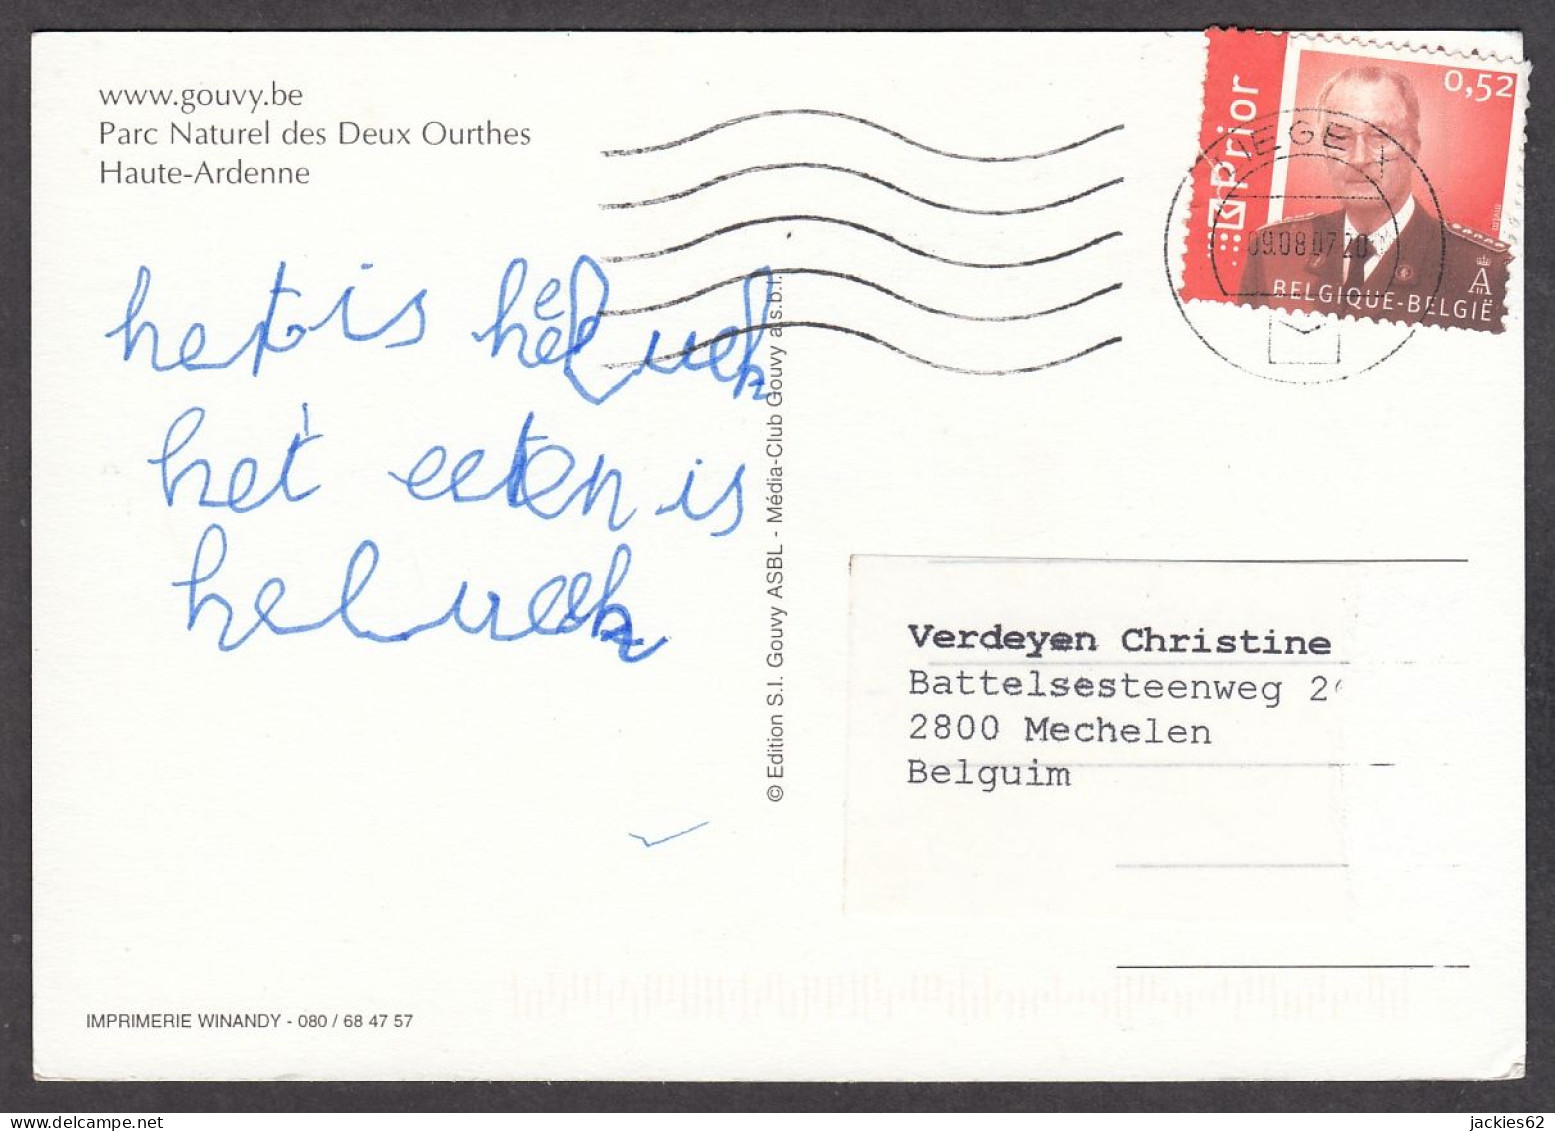 www.gouvy.be
Parc Naturel des Deux Ourthes
Haute-Ardenne
Prior
0,52
LIEGE X
09.08.07 20
BELGIQUE-BELGIË
A
het is heel
het eeten is
hel
© Edition S.I. Gouvy ASBL - Média-Club Gouvy a.s.b.l.
Verdeyen Christine
Battelsesteenweg
2800 Mechelen
Belguim
IMPRIMERIE WINANDY - 080 / 68 47 57
jackies62